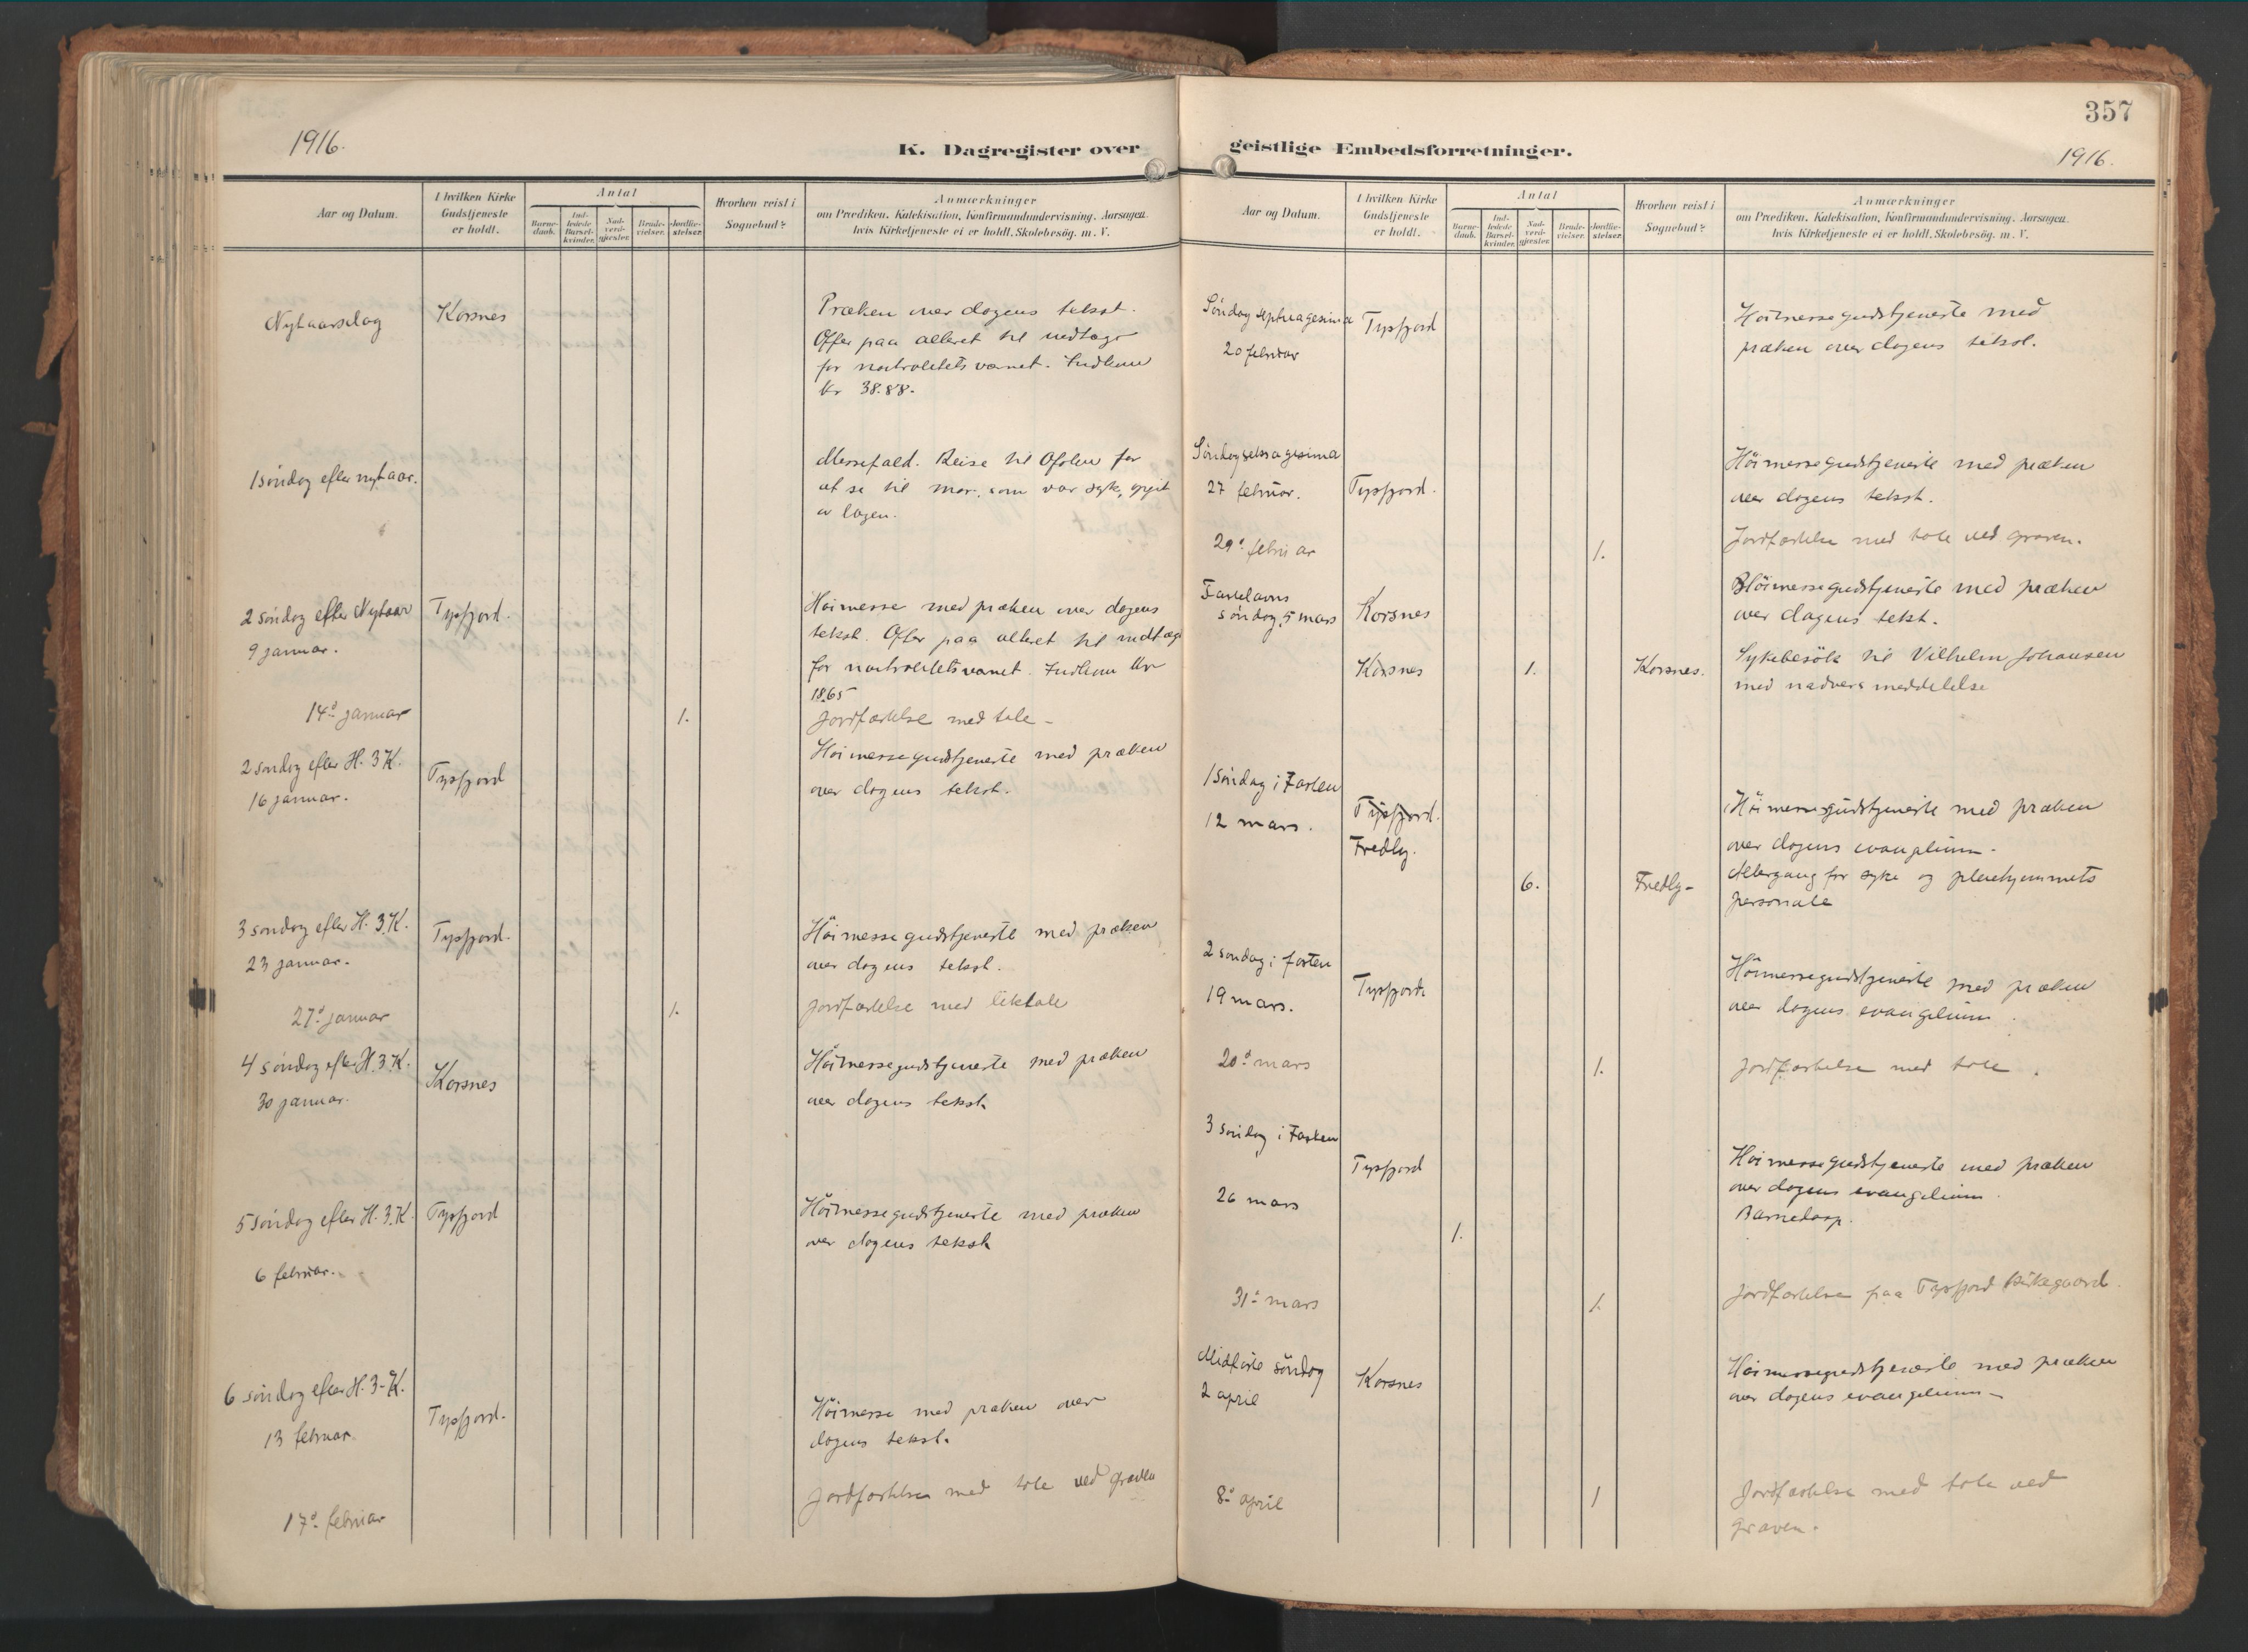 1916.
K. Dagregister over
Aar og Datum.
I hvilken Kirke
Gudstjeneste
er holdt.
Antal
Barne-
daab.
Ind-
ledede
Barsel-
kvinder.
Nad-
verd-
gjæster.
Brude-
vielser.
Jordfæ-
stelser.
Hvorhen reist i
Sognebud?
Anmærkninger
om Prædiken, Katekisation, Konfirmandundervisning. Aarsagen,
hvis Kirketjeneste ei er holdt. Skolebesög. m. V.
Nytaarsdag
Korsnes
Præken over dagens tekst.
Offer paa alteret til indtægt
for nøitralitetsvernet. Indkom
kr 38.88.
1 söndag efter nytaar.
Messefald. Reise til Ofoten for
at se til mor, som var syk, opgit
av lægen.
2 söndag efter Nytaar
9 januar.
Tysfjord.
Höimesse med præken over dagens
tekst. Offer paa alteret til indtægt
for nøitralitetsvernet. Indkom kr
18.65
14d. januar
1.
Jordfæstelse med tale -
2 söndag efter H. 3 K.
16 januar.
Tysfjord
Höimessegudstjeneste med præken
over dagens tekst.
3 söndag efter H. 3. K.
23 januar.
Tysfjord.
Höimessegudstjeneste med præken
over dagens tekst.
27d. januar
1.
Jordfæstelse med liktale
4 söndag efter H. 3. K.
30 januar.
Korsnes
Höimessegudstjeneste med præken
over dagens tekst.
5 söndag efter H. 3. K.
6 februar.
Tysfjord
Höimessegudstjeneste med præken
over dagens tekst
6 söndag efter H. 3. K.
13 februar.
Tysfjord.
Höimesse med præken over
dagens tekst.
17d. februar
Jordfæstelse med tale ved graven
357
geistlige Embedsforretninger.
1916.
Aar og Datum.
I hvilken Kirke
Gudstjeneste
er holdt.
Antal
Barne-
daab.
Ind-
ledede
Barsel-
kvinder.
Nad-
verd-
gjæster.
Brude-
vielser.
Jordfæ-
stelser.
Hvorhen reist i
Sognebud?
Anmærkninger
om Prædiken, Katekisation, Konfirmandundervisning. Aarsagen,
hvis Kirketjeneste ei er holdt. Skolebesög. m. V.
Söndag septuagesima
20 februar
Tysfjord
Höimessegudstjeneste med
præken over dagens tekst.
Söndag seksagesima
27 februar.
Tysfjord.
Höimessegudstjeneste med præken
over dagens tekst.
29d. februar
1.
Jordfæstelse med tale ved graven.
Fastelavns
söndag, 5 mars
Korsnes
Höimessegudstjeneste med præken
over dagens tekst.
Korsnes
1.
Korsnes.
Sykebesök til Vilhelm Johansen
med nadvers meddelelse
1 söndag i Fasten
12 mars.
Tysfjord.
Höimessegudstjeneste med præken
over dagens evangelium -
Fredly.
6.
Fredly -
Altergang for syke og pleiehjemmets
personale
2 söndag i fasten
19 mars.
Tysfjord.
Höimessegudstjeneste med præken
over dagens evangelium.
20d. mars
1.
Jordfæstelse med tale.
3 söndag i Fasten
26 mars
Tysfjord
Höimessegudstjeneste med præken
over dagens evangelium.
1.
Barnedaap.
31d. mars
1.
Jordfæstelse paa Tysfjord kirkegaard.
Midfaste söndag
2 april
Korsnes
Höimessegudstjeneste med præken
over dagens evangelium -
8d. april
1
Jordfæstelse med tale ved
graven.